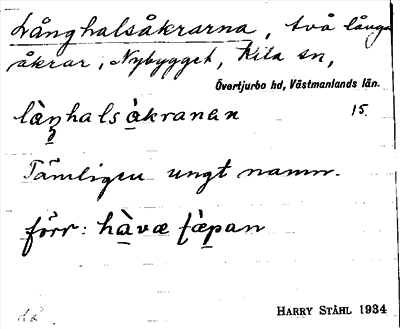 Långhalsåkrarna, två långa
åkrar, Nybygget, Kila sn,
Övertjurbo hd, Västmanlands län.
là̀ŋhalsàkranaʀ 15.
Tämligen ungt namn.
förr: hàvæ
HARRY STÅHL 1934